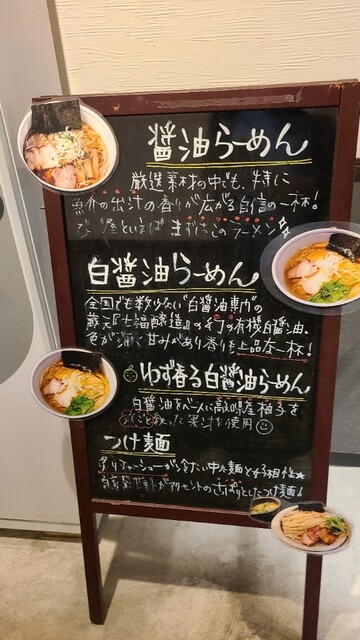 醤油らーめん
厳選素材の中でも、特に
魚介の出汁の香りが広がる自信の一杯!
び 屋といえば まずはこのラーメン
白醤油らーめん
全国でも数少ない"白醤油専門"の
蔵元『七福醸造』の 有機白醤油、
色が薄く 甘みがあり香りも上品な一杯!
ゆず香る白醤油らーめん
白醤油をベースに高知県産柚子を
丸ごと搾った果汁を使用
つけ麺
チャーシューが冷たい中太麺と相性
がアクセントのさっぱりとしたつけ麺!